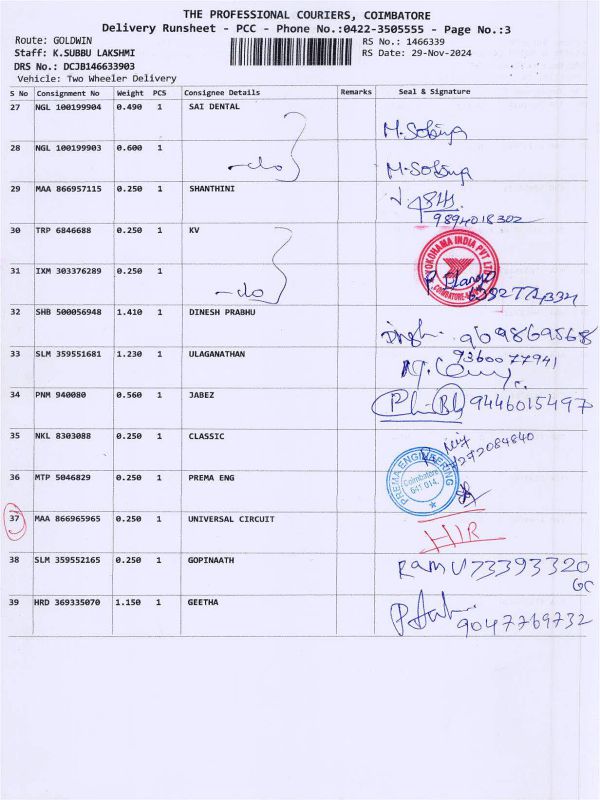 THE PROFESSIONAL COURIERS, COIMBATORE
Delivery Runsheet - PCC - Phone No.:0422-3505555 - Page No.:3
Route: GOLDWIN RS No.: 1466339
Staff: K.SUBBU LAKSHMI RS Date: 29-Nov-2024
DRS No.: DCJB146633903
Vehicle: Two Wheeler Delivery
S No Consignment No Weight PCS Consignee Details Remarks Seal & Signature
27 NGL 100199904 0.490 1 SAI DENTAL
M. Sobiya
28 NGL 100199903 0.600 1
-do M. Sobiya
29 MAA 866957115 0.250 1 SHANTHINI
9894018302
30 TRP 6846688 0.250 1 KV
YOKOHAMA INDIA PVT LTD
31 IXM 303376289 0.250 1
-do
32 SHB 500056948 1.410 1 DINESH PRABHU
969869568
33 SLM 359551681 1.230 1 ULAGANATHAN
9360077941
34 PNM 940080 0.560 1 JABEZ
9446015497
35 NKL 8303088 0.250 1 CLASSIC
36 MTP 5046829 0.250 1 PREMA ENG
PREMA ENGINEERING
Coimbatore
641 014.
37 MAA 866965965 0.250 1 UNIVERSAL CIRCUIT
38 SLM 359552165 0.250 1 GOPINAATH
RAMU 73393320
39 HRD 369335070 1.150 1 GEETHA
9047769732